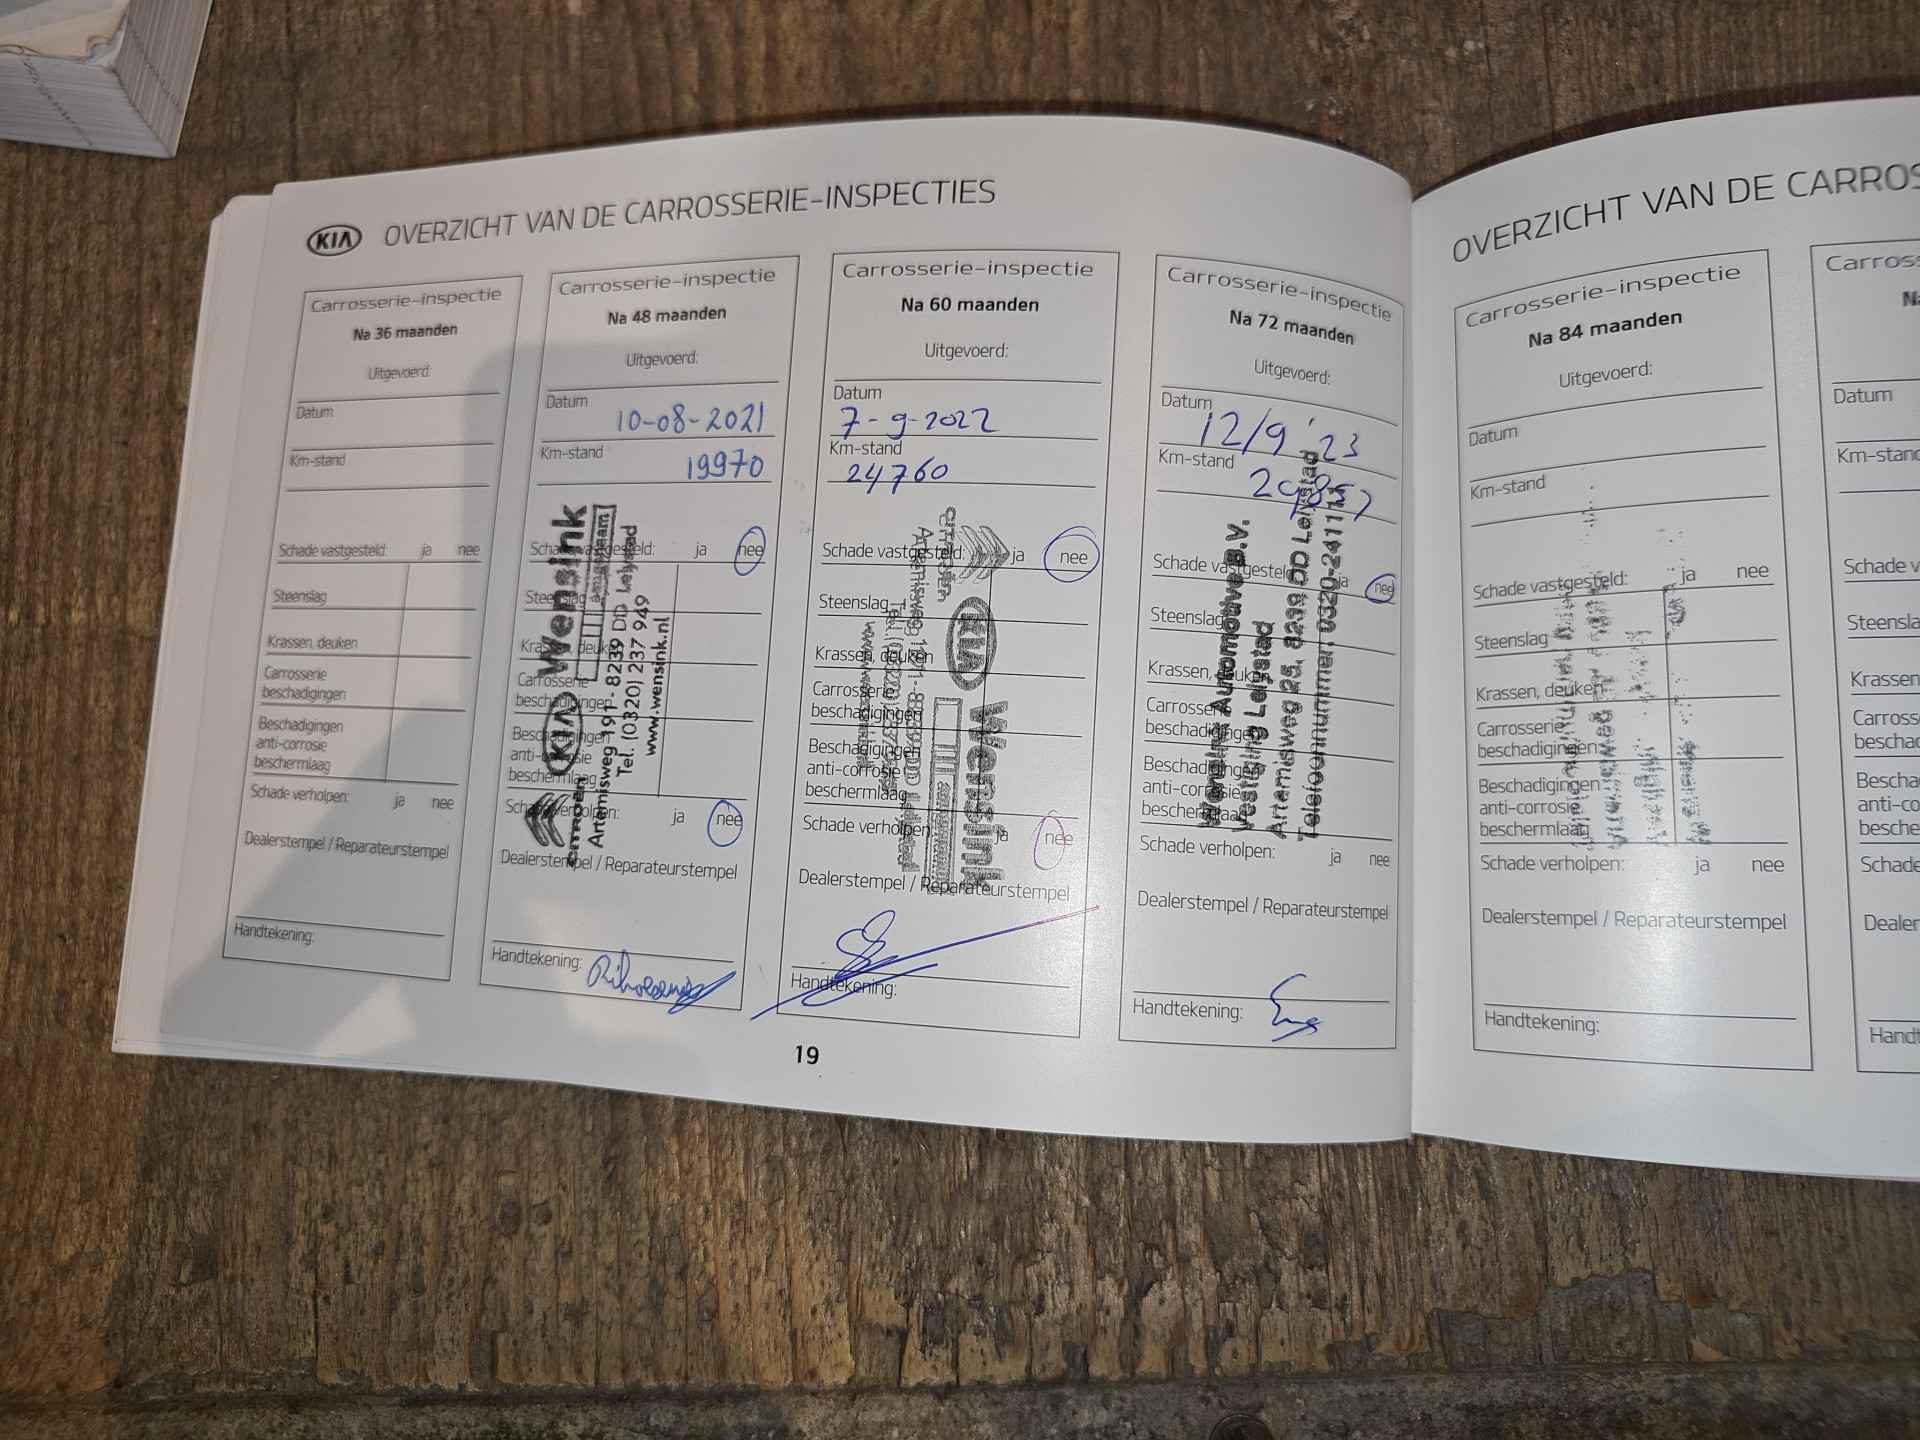 KIA OVERZICHT VAN DE CARROSSERIE-INSPECTIES
Carrosserie-inspectie
Na 36 maanden
Uitgevoerd:
Datum
Km-stand
Schade vastgesteld: ja nee
Steenslag
Krassen, deuken
Carrosserie
beschadigingen
Beschadigingen
anti-corrosie
beschermlaag
Schade verholpen: ja nee
Dealerstempel / Reparateurstempel
Handtekening:
Carrosserie-inspectie
Na 48 maanden
Uitgevoerd:
Datum
10-08-2021
Km-stand
19970
Schade vastgesteld: ja nee
Steenslag
Krassen, deuken
Carrosserie
beschadigingen
Beschadigingen
anti-corrosie
beschermlaag
Schade verholpen: ja nee
Dealerstempel / Reparateurstempel
Handtekening:
CITROËN KIA Wensink
aangenaam
Artemisweg 191 - 8239 DD Lelystad
Tel. (0320) 237 949
www.wensink.nl
Carrosserie-inspectie
Na 60 maanden
Uitgevoerd:
Datum
7-9-2022
Km-stand
24760
Schade vastgesteld: ja nee
Steenslag
Krassen, deuken
Carrosserie
beschadigingen
Beschadigingen
anti-corrosie
beschermlaag
Schade verholpen: ja nee
Dealerstempel / Reparateurstempel
Handtekening:
CITROËN KIA Wensink
Carrosserie-inspectie
Na 72 maanden
Uitgevoerd:
Datum
12/9 '23
Km-stand
29857
Schade vastgesteld: ja nee
Steenslag
Krassen, deuken
Carrosserie
beschadigingen
Beschadigingen
anti-corrosie
beschermlaag
Schade verholpen: ja nee
Dealerstempel / Reparateurstempel
Handtekening:
Wensink Automotive B.V.
Vestiging Lelystad
Artemisweg 25, 8239 DD Lelystad
Telefoonnummer: 0320-241114
19
OVERZICHT VAN DE CARROS
Carrosserie-inspectie
Na 84 maanden
Uitgevoerd:
Datum
Km-stand
Schade vastgesteld: ja nee
Steenslag
Krassen, deuken
Carrosserie
beschadigingen
Beschadigingen
anti-corrosie
beschermlaag
Schade verholpen: ja nee
Dealerstempel / Reparateurstempel
Handtekening:
Carross
Na
Datum
Km-stand
Schade v
Steensla
Krassen
Carross
bescha
Bescha
anti-co
besche
Schade
Dealer
Handt